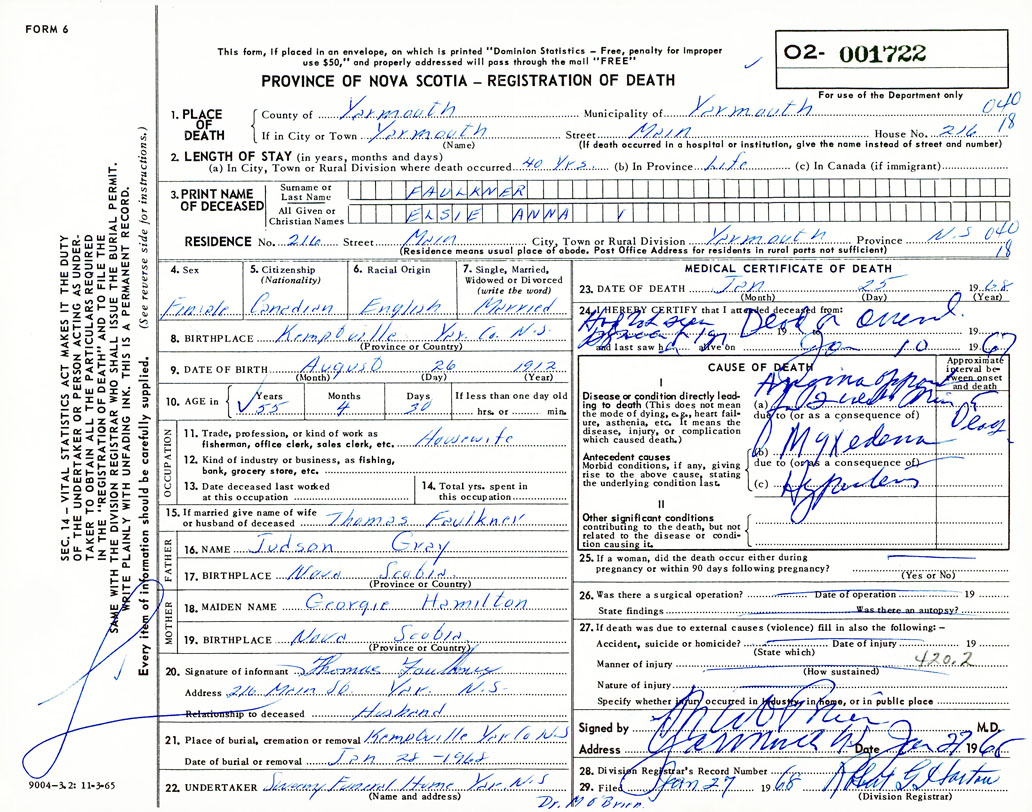 FORM 6
This form, if placed in an envelope, on which is printed "Dominion Statistics – Free, penalty for improper
use $50," and properly addressed will pass through the mail "FREE"
O2- 001722
PROVINCE OF NOVA SCOTIA – REGISTRATION OF DEATH
For use of the Department only
040
18
1. PLACE OF DEATH County of Yarmouth Municipality of Yarmouth
If in City or Town Yarmouth Street Main House No. 216
(Name) (If death occurred in a hospital or institution, give the name instead of street and number)
2. LENGTH OF STAY (in years, months and days)
(a) In City, Town or Rural Division where death occurred 40 Yrs. (b) In Province Life (c) In Canada (if immigrant)
3. PRINT NAME OF DECEASED
Surname or Last Name FAULKNER
All Given or Christian Names ELSIE ANNA
RESIDENCE No. 216 Street Main City, Town or Rural Division Yarmouth Province N.S 040
(Residence means usual place of abode. Post Office Address for residents in rural parts not sufficient) 18
4. Sex Female
5. Citizenship (Nationality) Canadian
6. Racial Origin English
7. Single, Married, Widowed or Divorced (write the word) Married
8. BIRTHPLACE Kemptville Yar. Co. N.S.
(Province or Country)
9. DATE OF BIRTH August 26 1912
(Month) (Day) (Year)
10. AGE in Years 55 Months 4 Days 30 If less than one day old hrs. or min.
OCCUPATION
11. Trade, profession, or kind of work as fisherman, office clerk, sales clerk, etc. Housewife
12. Kind of industry or business, as fishing, bank, grocery store, etc.
13. Date deceased last worked at this occupation
14. Total yrs. spent in this occupation
15. If married give name of wife or husband of deceased Thomas Faulkner
FATHER
16. NAME Judson Gray
17. BIRTHPLACE Nova Scotia
(Province or Country)
MOTHER
18. MAIDEN NAME Georgie Hamilton
19. BIRTHPLACE Nova Scotia
(Province or Country)
20. Signature of informant Thomas Faulkner
Address 216 Main St Yar. N.S.
Relationship to deceased Husband
21. Place of burial, cremation or removal Kemptville Yar Co N.S
Date of burial or removal Jan 28 - 1968
22. UNDERTAKER Funeral Home Yar N.S
(Name and address)
Dr. M O'Brien
MEDICAL CERTIFICATE OF DEATH
23. DATE OF DEATH Jan 25 1968
(Month) (Day) (Year)
24. I HEREBY CERTIFY that I attended deceased from:
Dead on arrival
19
and last saw h alive on Jan 10 1967
CAUSE OF DEATH
Approximate interval between onset and death
I
Disease or condition directly leading to death (This does not mean the mode of dying, e.g., heart failure, asthenia, etc. It means the disease, injury, or complication which caused death.)
Angina
due to (or as a consequence of)
Antecedent causes
Morbid conditions, if any, giving rise to the above cause, stating the underlying condition last.
(b) Myxedema
due to (or as a consequence of)
(c)
II
Other significant conditions
contributing to the death, but not related to the disease or condition causing it.
25. If a woman, did the death occur either during pregnancy or within 90 days following pregnancy?
(Yes or No)
26. Was there a surgical operation? Date of operation 19
State findings Was there an autopsy?
27. If death was due to external causes (violence) fill in also the following: –
Accident, suicide or homicide? Date of injury 19
(State which)
420.2
Manner of injury
(How sustained)
Nature of injury
Specify whether injury occurred in industry, in home, or in public place
Signed by M.D.
Address Yarmouth NS Date Jan 27 1968
28. Division Registrar's Record Number
29. Filed Jan 27 1968 Robert G Horton
(Division Registrar)
SEC. 14 – VITAL STATISTICS ACT MAKES IT THE DUTY
OF THE UNDERTAKER OR PERSON ACTING AS UNDER-
TAKER TO OBTAIN ALL THE PARTICULARS REQUIRED
IN THE "REGISTRATION OF DEATH" AND TO FILE THE
SAME WITH THE DIVISION REGISTRAR WHO SHALL ISSUE THE BURIAL PERMIT.
WRITE PLAINLY WITH UNFADING INK. THIS IS A PERMANENT RECORD.
Every item of information should be carefully supplied. (See reverse side for instructions.)
9004-3.2: 11-3-65